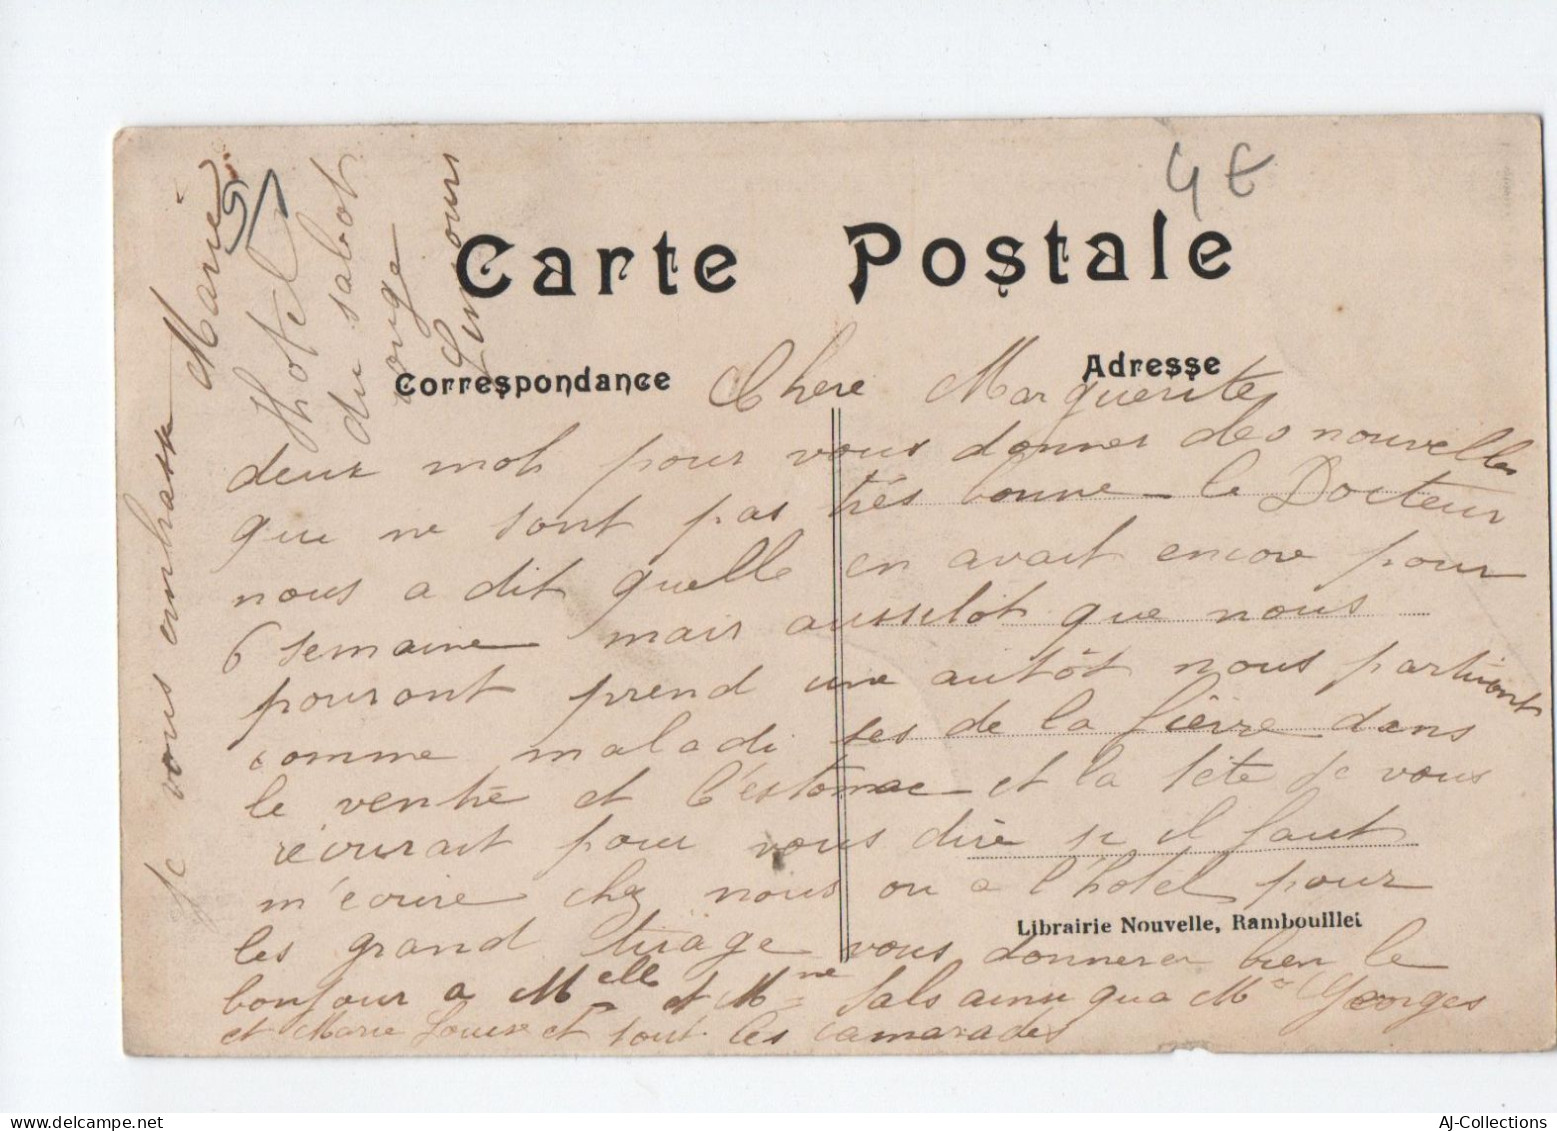 4 €
Carte Postale
Correspondance
Adresse
Chere Marguerite
deux mots pour vous donner des nouvelles
que ne sont pas très bonne le Docteur
nous a dit quelle en avait encore pour
6 semaine mais aussitot que nous
pouront prend une autôt nous partiront
comme maladi ses de la fièvre dans
le ventre et l'estomac et la tête je vous
récrirait pour vous dire si il faut
m'écrire chez nous ou a l'hotel pour
les grand tirage vous donnerer bien le
bonjour a Melle et Mme Sals ainsi qua Mr Georges
et Marie Louise et tout les camarades
Librairie Nouvelle, Rambouillet
je vous embrasse Marie
hotel
du sabot
rouge
Limours
AJ-Collections